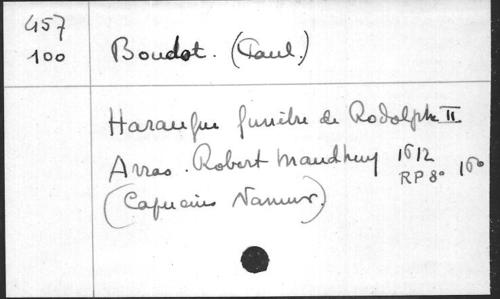 457
100
Boudot. (Paul.)
Harangue funèbre de Rodolphe II
Arras. Robert Maudhuy 1612
RP 8° 16°
(Capucins Namur.)